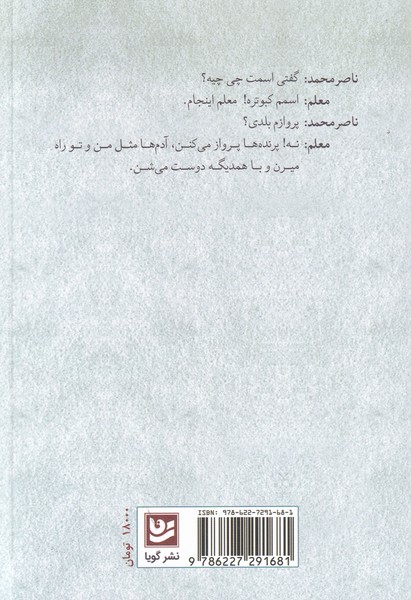 ناصرمحمد: گفتی اسمت چی چیه؟
معلم: اسمم کبوتره! معلم اینجام.
ناصرمحمد: پروازم بلدی؟
معلم: نه! پرنده‌ها پرواز می‌کنن، آدم‌ها مثل من و تو راه
میرن و با همدیگه دوست می‌شن.
۱۸۰۰۰ تومان
نشر گویا
ISBN: 978-622-7291-68-1
9 786227 291681